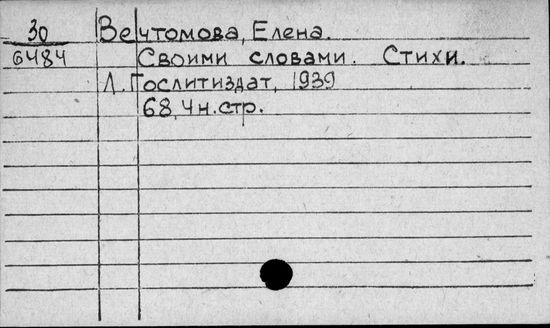 30 Вечтомова, Елена.
6484 Своими словами. Стихи.
Л. Гослитиздат, 1939
68, 4 н. стр.